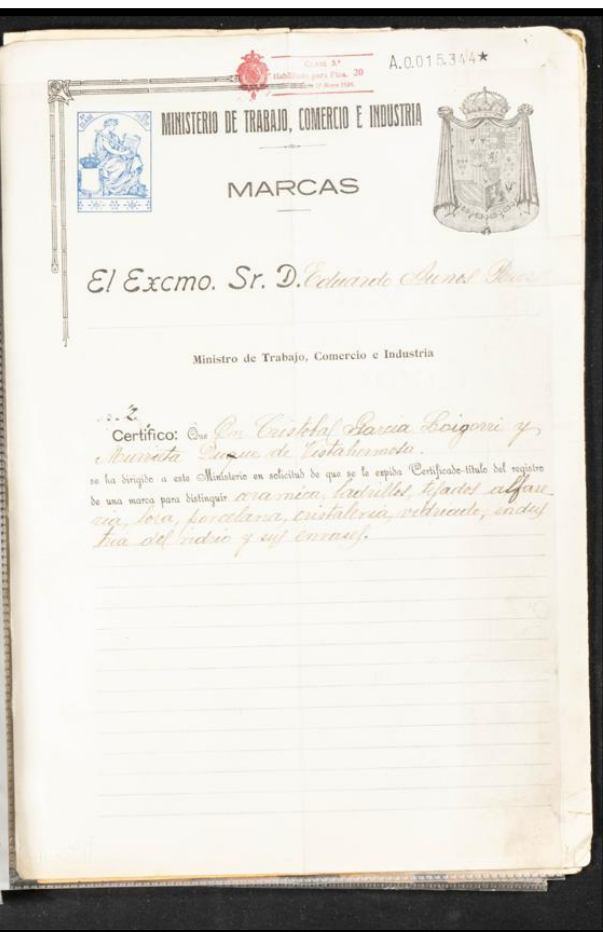 CLASE 8ª
Habilitado para Ptas. 20
A.0.015.344★
MINISTERIO DE TRABAJO, COMERCIO E INDUSTRIA
MARCAS
El Excmo. Sr. D. Eduardo Aunos
Ministro de Trabajo, Comercio e Industria
2
Certífico: Que Dn Cristobal Garcia Loigorri y
Murrieta Duque de Vistahermosa.
se ha dirigido a este Ministerio en solicitud de que se le expida Certificado-título del registro
de una marca para distinguir aramica, ladrillos, tejados alfare-
ria, loza, porcelana, cristaleria, vidriado, indus
tria del vidrio y sus envases.